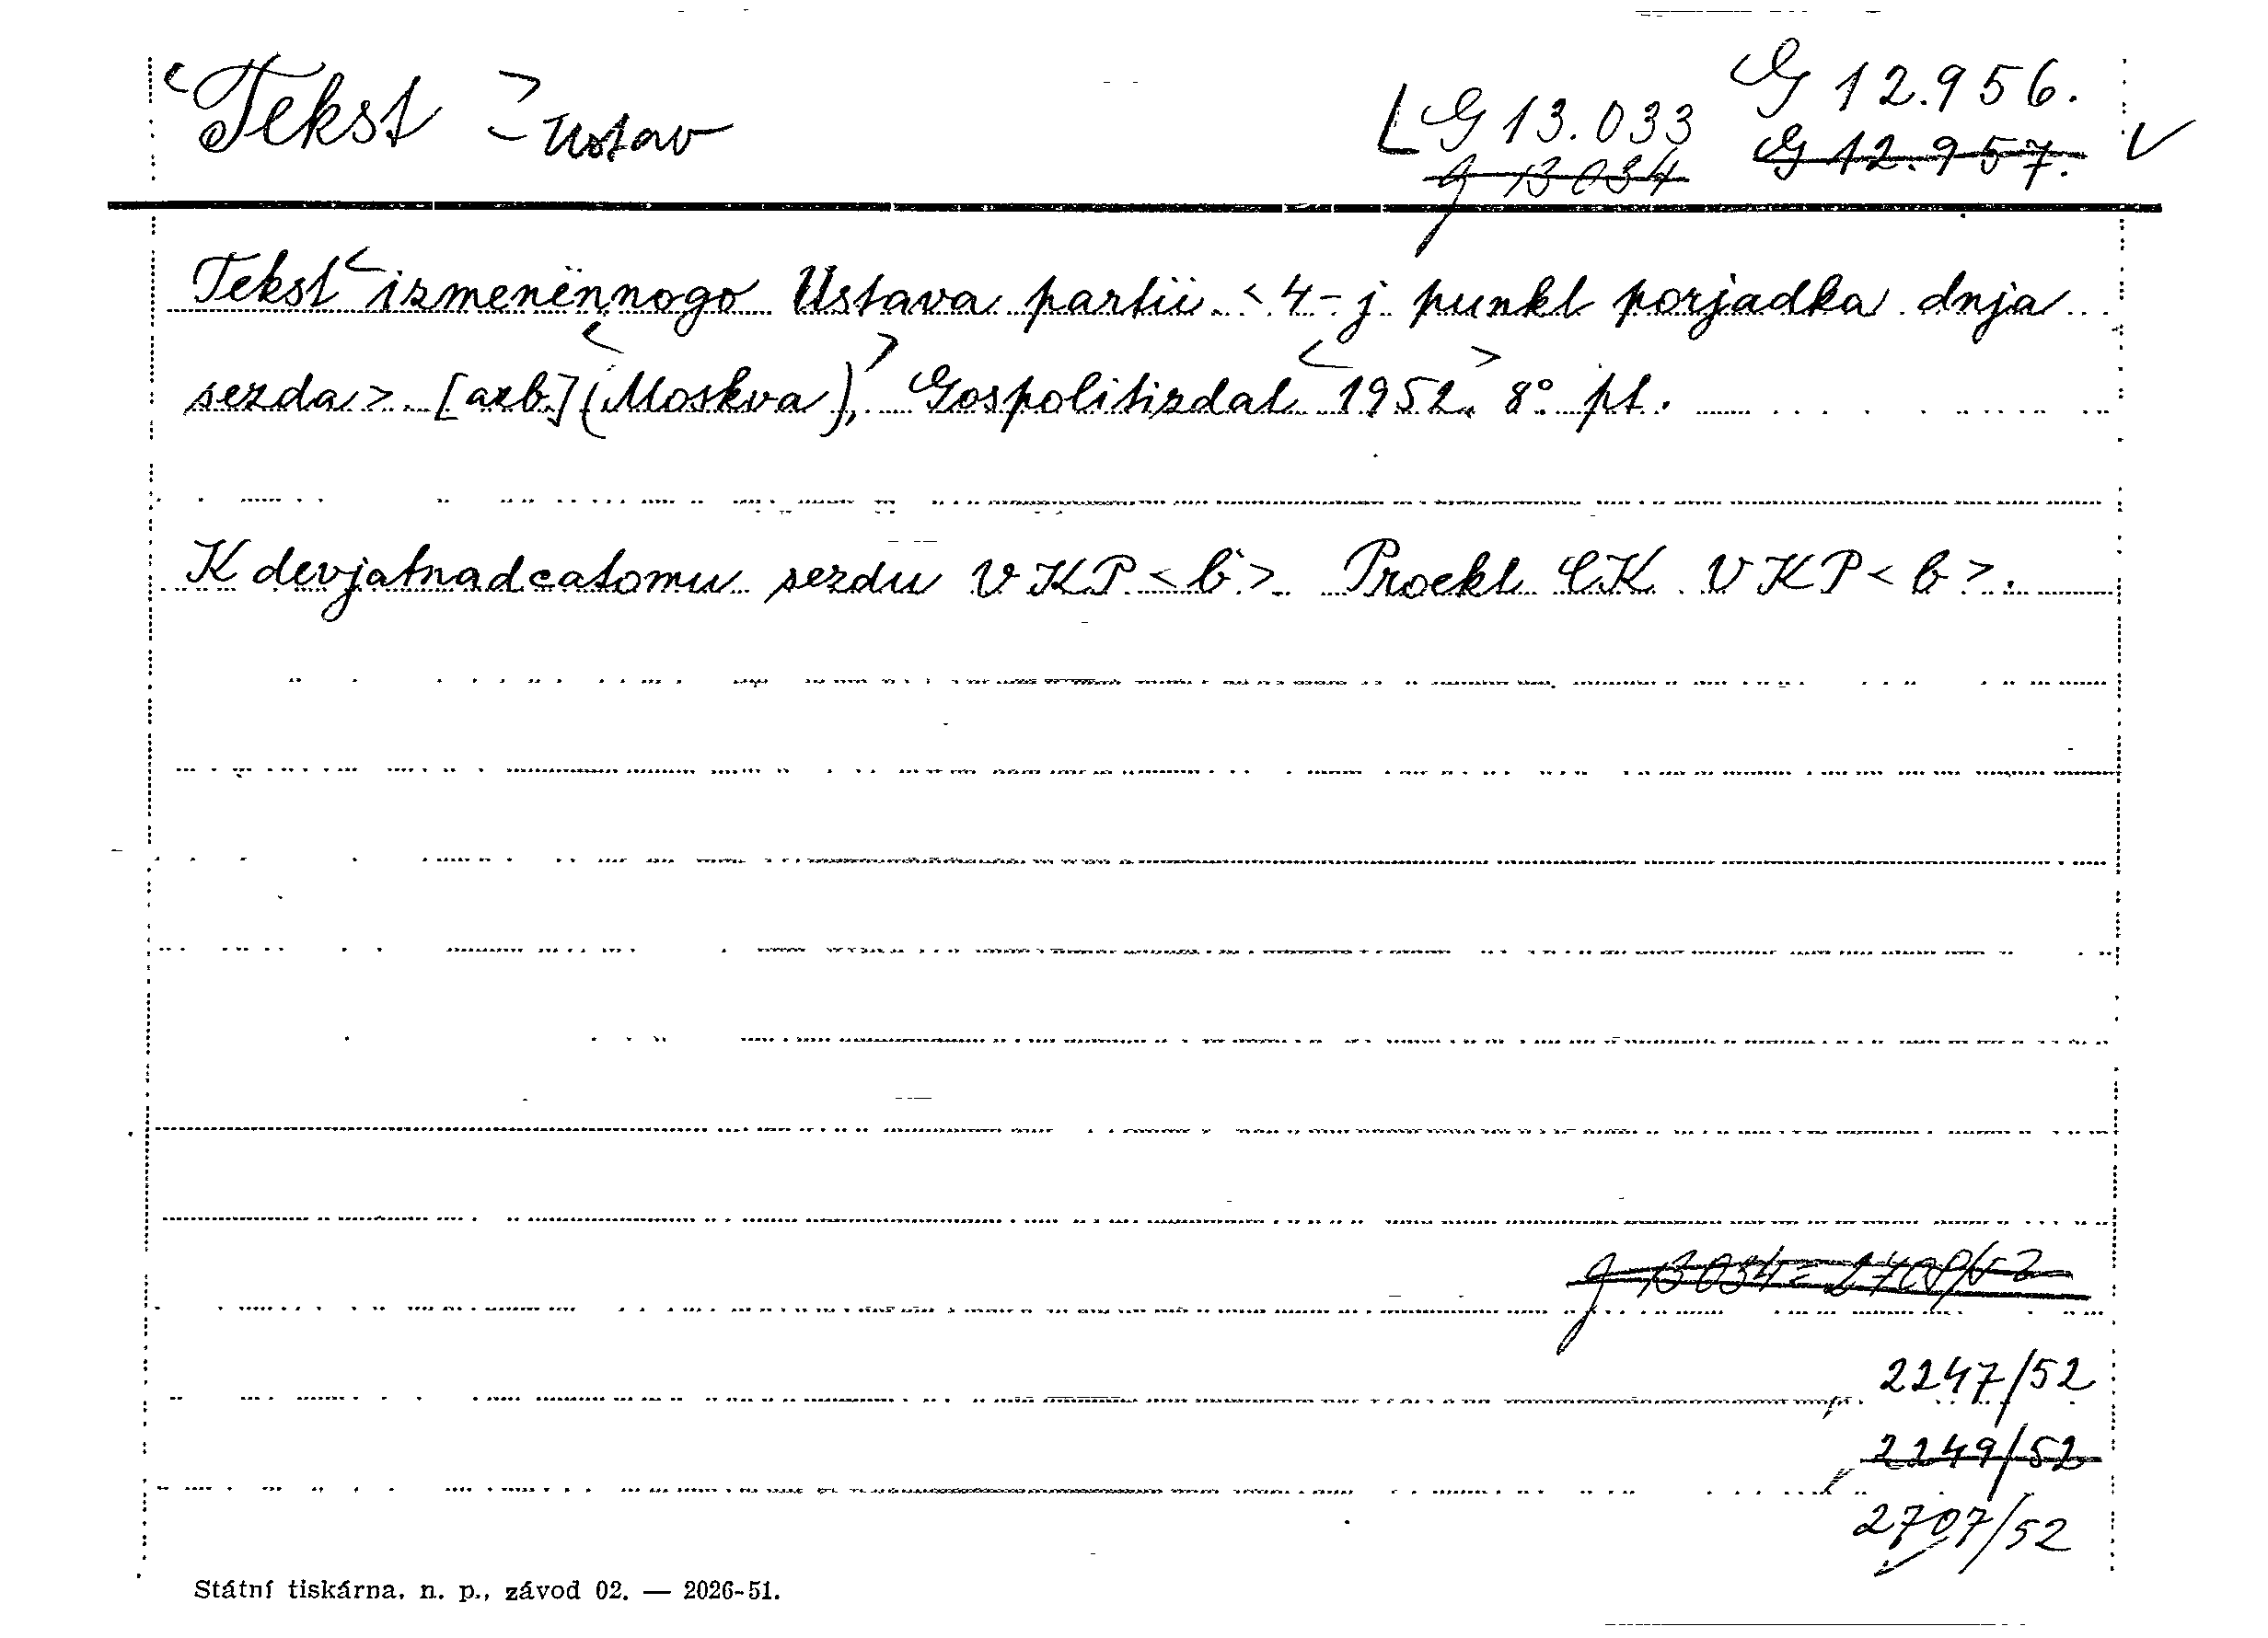 <Tekst> Ustav
G 12.956.
G 13.033
G 12.957.
g 13034
Tekst <izmenënnogo Ustava partii <4-j punkt porjadka dnja
sezda>. [azb.] <(Moskva),> Gospolitizdat <1952.> 8° pt.
K devjatnadcatomu sezdu VKP<b>. Proekt CK VKP<b>.
g 13034 = 2708/52
2247/52
2249/52
2707/52
Státní tiskárna, n. p., závod 02. — 2026-51.